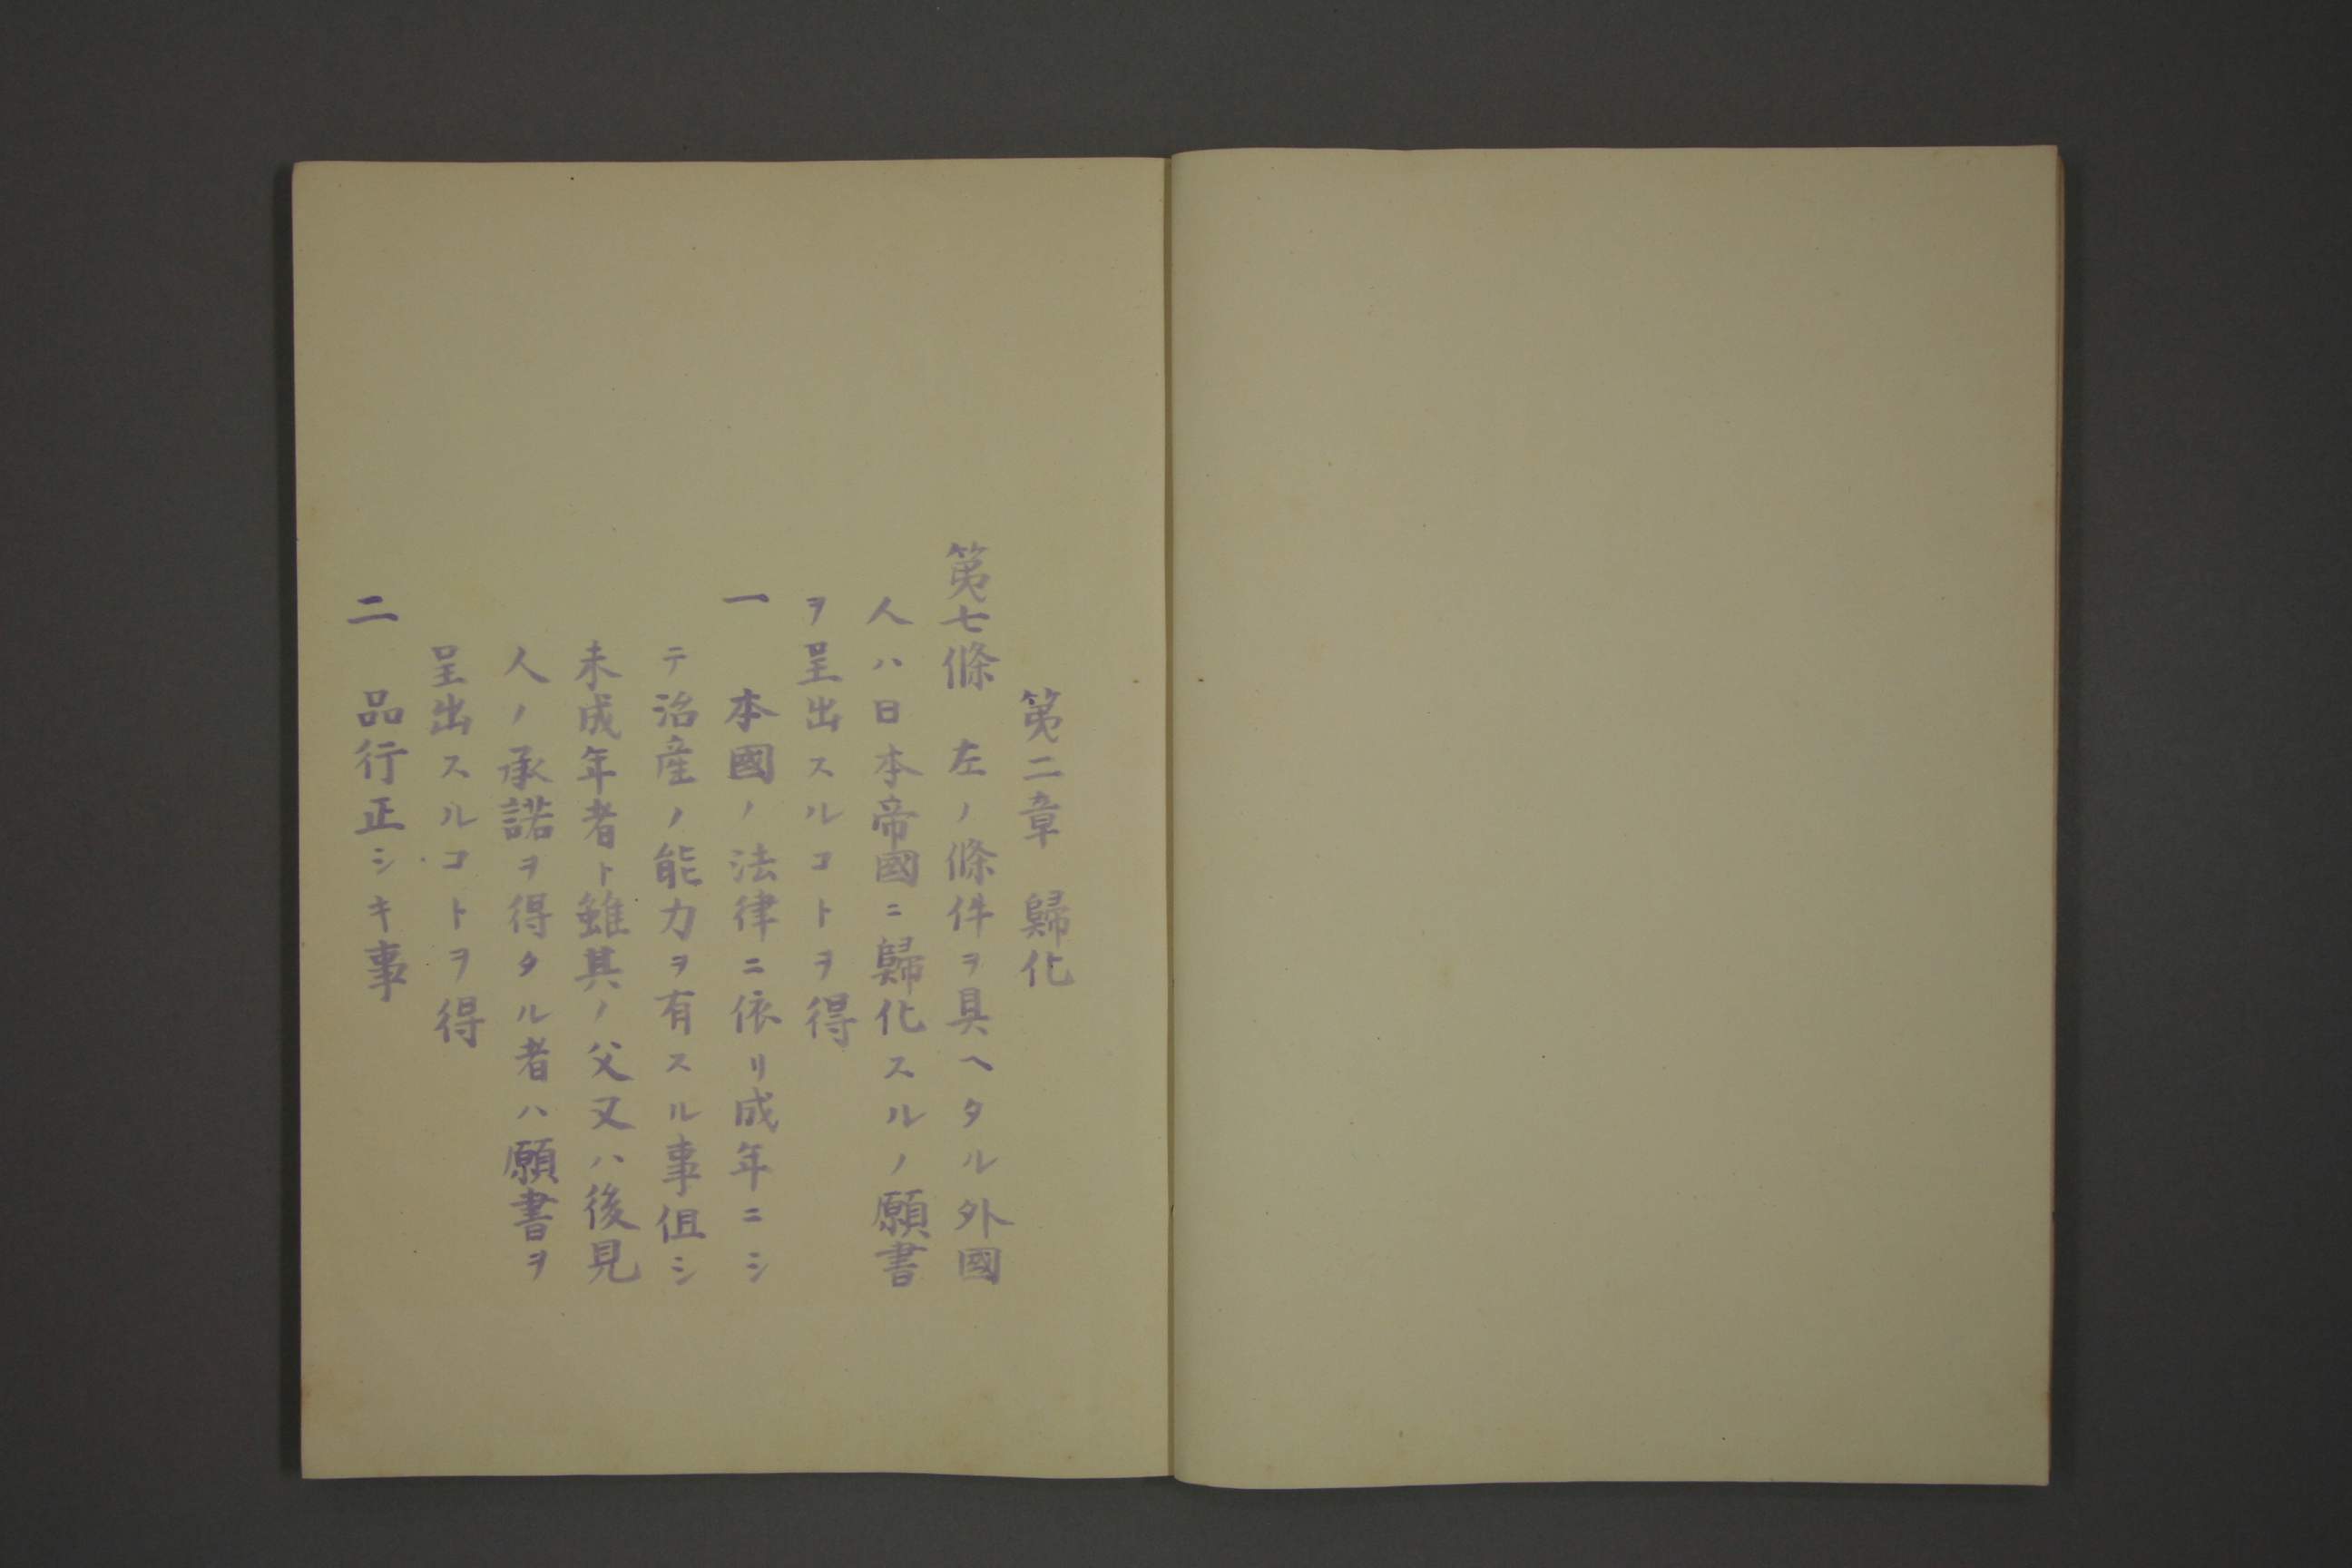 第二章　歸化
第七條　左ノ條件ヲ具ヘタル外國
人ハ日本帝國ニ歸化スルノ願書
ヲ呈出スルコトヲ得
一　本國ノ法律ニ依リ成年ニシ
テ治産ノ能力ヲ有スル事但シ
未成年者ト雖其ノ父又ハ後見
人ノ承諾ヲ得タル者ハ願書ヲ
呈出スルコトヲ得
二　品行正シキ事